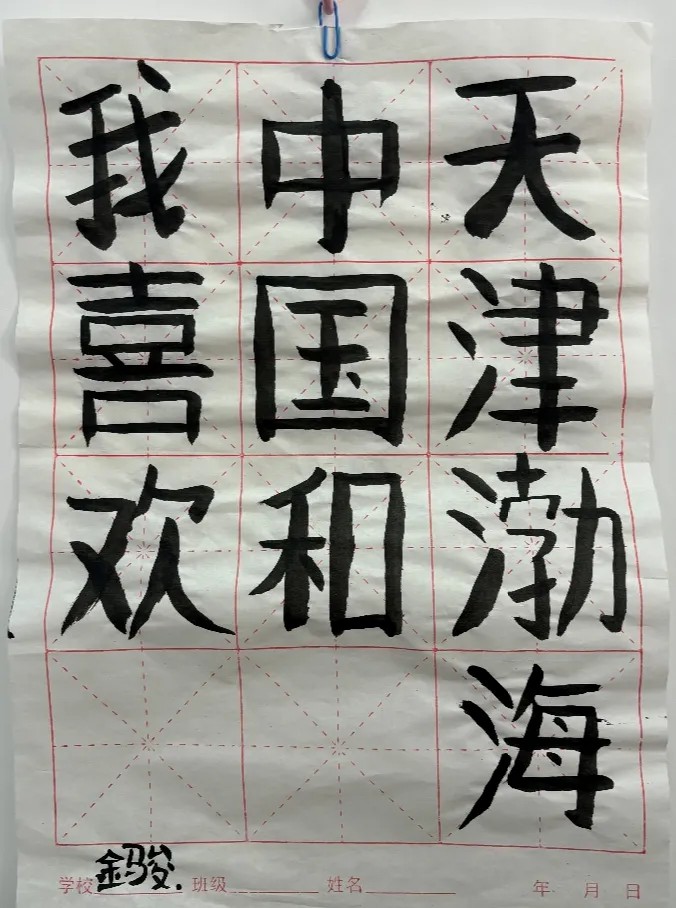 我喜欢
中国和
天津渤海
学校金骏. 班级 姓名 年 月 日